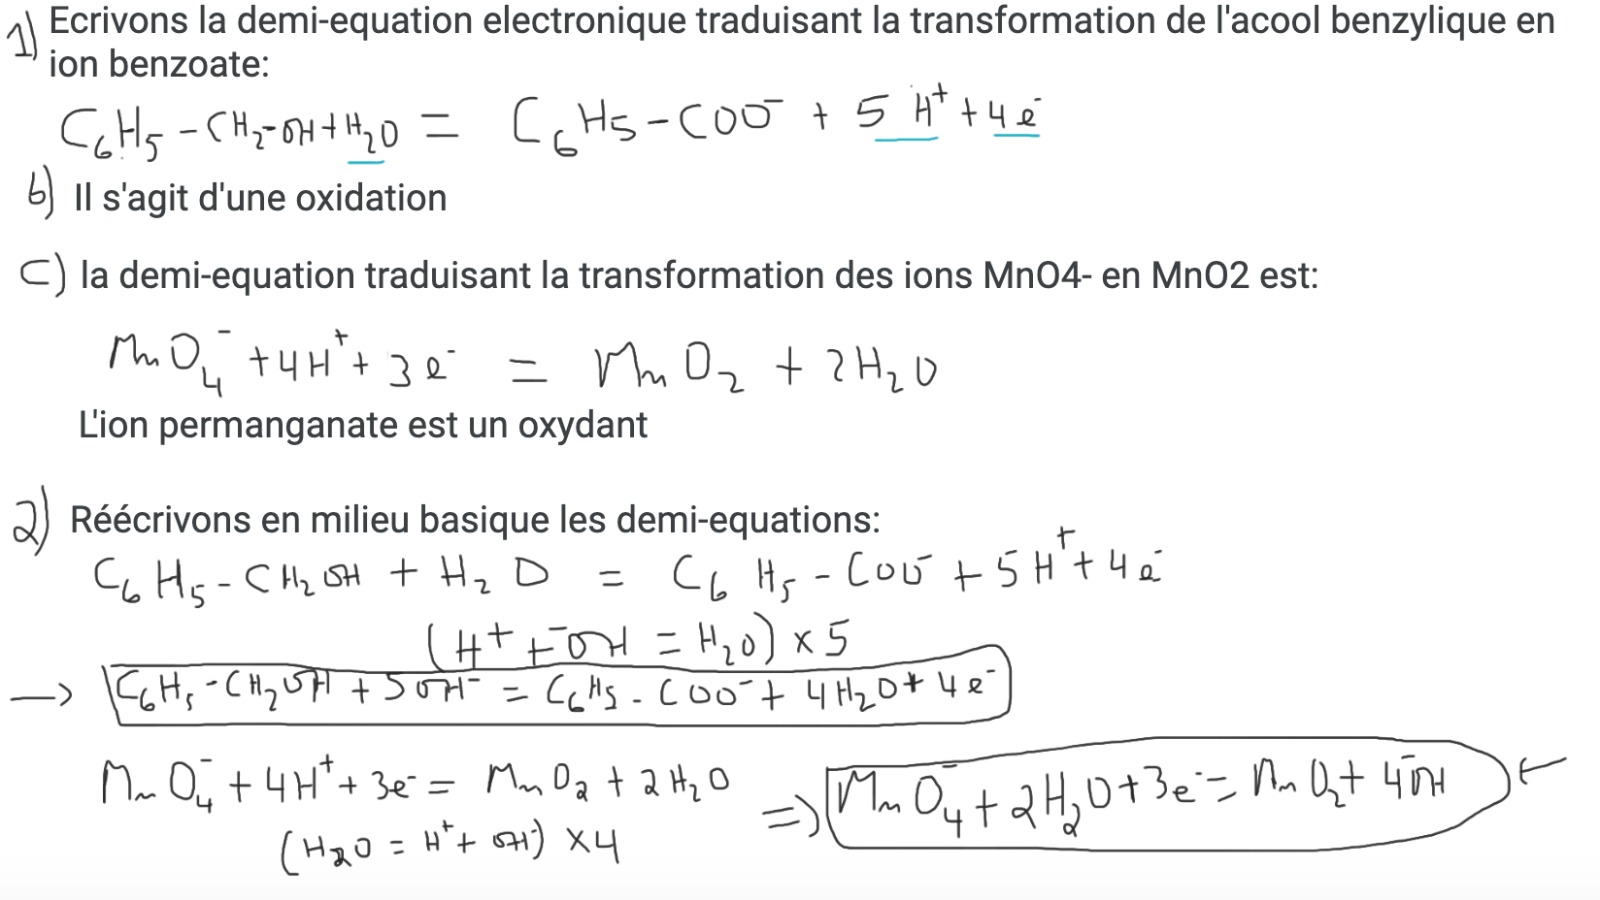 1) Ecrivons la demi-equation electronique traduisant la transformation de l'acool benzylique en
ion benzoate:
C₆H₅-CH₂-OH+H₂O = C₆H₅-COO⁻ + 5 H⁺ + 4e⁻
b) Il s'agit d'une oxidation
C) la demi-equation traduisant la transformation des ions MnO4- en MnO2 est:
MnO₄⁻ + 4H⁺ + 3e⁻ = MnO₂ + 2H₂O
L'ion permanganate est un oxydant
2) Réécrivons en milieu basique les demi-equations:
C₆H₅-CH₂OH + H₂O = C₆H₅-COO⁻ + 5H⁺ + 4e⁻
(H⁺ + ⁻OH = H₂O) x 5
→ C₆H₅-CH₂OH + 5OH⁻ = C₆H₅-COO⁻ + 4H₂O + 4e⁻
MnO₄⁻ + 4H⁺ + 3e⁻ = MnO₂ + 2H₂O
(H₂O = H⁺ + OH⁻) x4
⇒ MnO₄⁻ + 2H₂O + 3e⁻ = MnO₂ + 4⁻OH ←